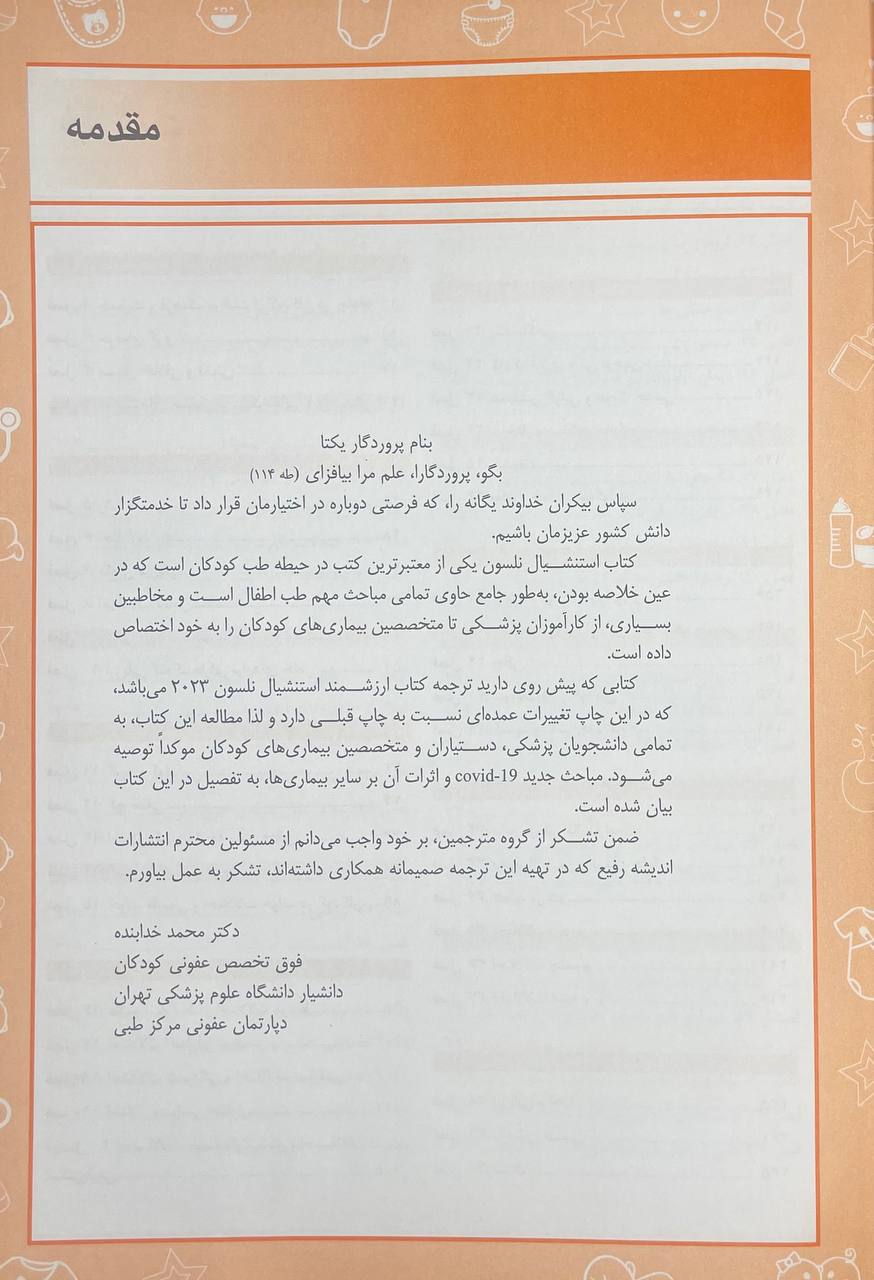 مقدمه
بنام پروردگار یکتا
بگو، پروردگارا، علم مرا بیافزای (طه ۱۱۴)
سپاس بیکران خداوند یگانه را، که فرصتی دوباره در اختیارمان قرار داد تا خدمتگزار
دانش کشور عزیزمان باشیم.
کتاب استنشیال نلسون یکی از معتبرترین کتب در حیطه طب کودکان است که در
عین خلاصه بودن، به‌طور جامع حاوی تمامی مباحث مهم طب اطفال است و مخاطبین
بسیاری، از کارآموزان پزشکی تا متخصصین بیماری‌های کودکان را به خود اختصاص
داده است.
کتابی که پیش روی دارید ترجمه کتاب ارزشمند استنشیال نلسون ۲۰۲۳ می‌باشد،
که در این چاپ تغییرات عمده‌ای نسبت به چاپ قبلی دارد و لذا مطالعه این کتاب، به
تمامی دانشجویان پزشکی، دستیاران و متخصصین بیماری‌های کودکان موکداً توصیه
می‌شود. مباحث جدید covid-19 و اثرات آن بر سایر بیماری‌ها، به تفصیل در این کتاب
بیان شده است.
ضمن تشکر از گروه مترجمین، بر خود واجب می‌دانم از مسئولین محترم انتشارات
اندیشه رفیع که در تهیه این ترجمه صمیمانه همکاری داشته‌اند، تشکر به عمل بیاورم.
دکتر محمد خدابنده
فوق تخصص عفونی کودکان
دانشیار دانشگاه علوم پزشکی تهران
دپارتمان عفونی مرکز طبی